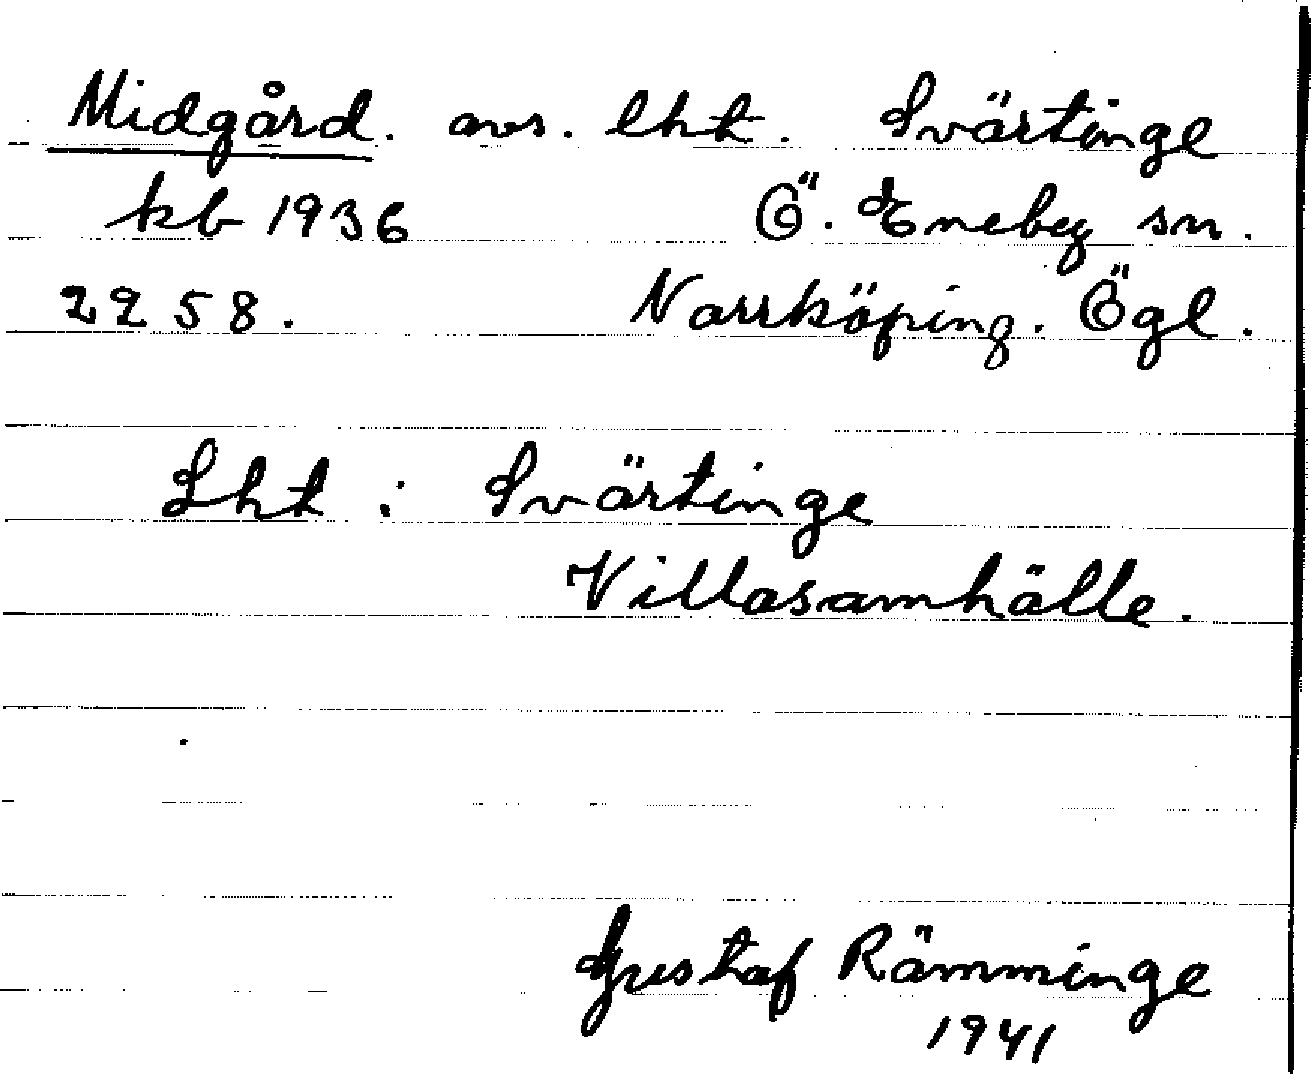 Midgård. avs. lht. Svärtinge
kb 1936 Ö. Eneby sn.
2258. Norrköping. Ögl.
Lht : Svärtinge
Villasamhälle.
Gustaf Rämminge
1941